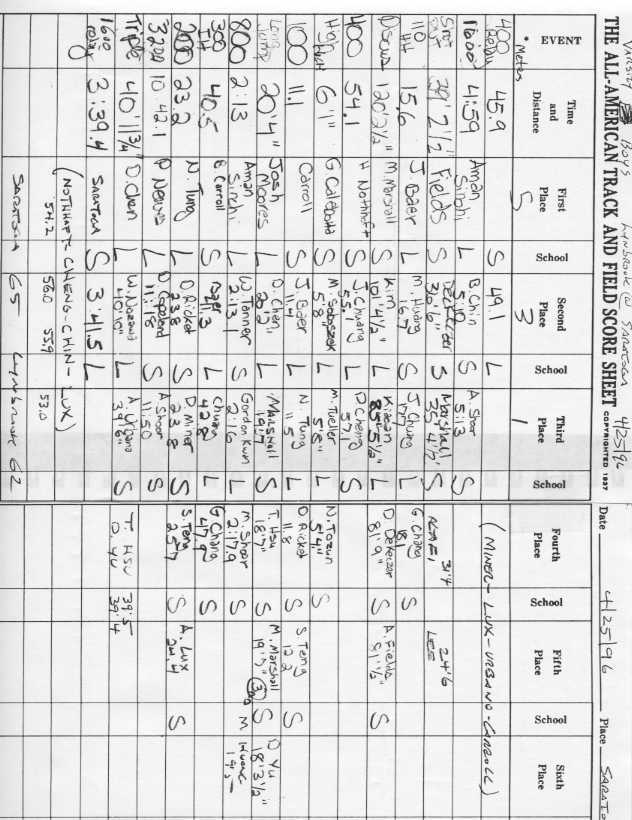 Varsity Boys Lynbrook @ Saratoga 4/25/96
THE ALL-AMERICAN TRACK AND FIELD SCORE SHEET COPYRIGHTED 1937 Date 4/25/96 Place
EVENT Time and Distance First Place School Second Place School Third Place School Fourth Place School Fifth Place School Sixth Place
* Meters 5 3 1
400 Relay 45.9 S 49.1 L (MINER-LUX-URBANO-CARROLL)
1600 4:59 Aman Sirohi L B. Chin 5:10 S A. Shoor 5:13 S
Shot Put 39' 2 1/2" Fields S 36'6" S Marshall 35' 4 1/2" S 31'4 LEE 24'6
110 HH 15.6 J. Baer L M. Huang 16.7 L J. Chung 17.7 L G. Chang 18.1 S
Discus 120' 2 1/2" M. Marshall S Kim 101' 4 1/2" L 85' 5 1/2" L D. 81' 9" S A. Fields 81' 1/2" S
400 54.1 H Nothhaft S J. Chuang 55.1 L D. Cheng 57.1 S
High Jump 6'1" G Calebotta S M. Sobaszek 5'8" S M. Tueller 5'8" L N. Tazun 5'4" S
100 11.1 Carroll S J. Baer 11.4 L N. Tung 11.5 L D Ricket 11.8 S S Teng 12.2 S
Long Jump 20'4" Josh Moores L D. Chen 20'2" L Marshall 19'7" S T. Hsu 18'7" S M. Marshall 19'5" S D Yu 18' 3 1/2"
800 2:13 Aman Sirohi L W. Tanner 2:13.1 S Gordon Kwn 2:16 L M. Shoor 2:17.9 S M Huang
300 IH 40.5 B Carroll S Baer 41.3 L Chuang 42.8 L G Chang 47.9 S
200 23.2 N. Tung L D. Ricket 23.8 S D. Miner 23.8 S S. Teng 25.7 S A. Lux 24.4 S
3200 10 42.1 P Neuwes L D Copeland 11:18 S A Shoor 11:50 S
Triple 40' 11 3/4" D Chen L W. Nozawa 40'10" L A. Urbano 39'8" S T. HSU 39'5 39'4 S
1600 relay 3:39.4 SARATOGA S 3:41.5 L
(NOTHHAFT-CHENG-CHIN-LUX)
54.2 56.0 55.9 53.0
SARATOGA 65 LYNBROOK 62